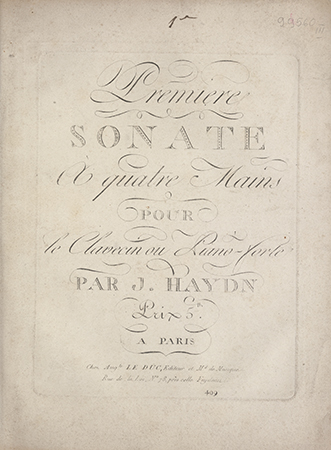 1re
Premiere
SONATE
A quatre Mains
POUR
le Clavecin ou Piano-forte
PAR J. HAYDN
Prix 5.#
A PARIS
Chez Augte. LE DUC, Editeur et Md. de Musique
Rue de la Loi, No. 78, près celle Feydeau